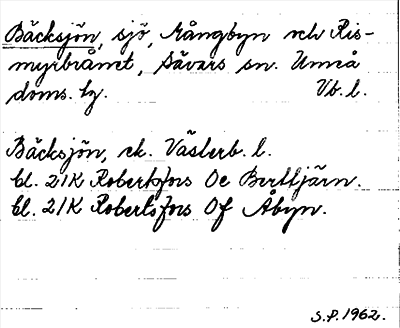 Bäcksjön, sjö, Kångbyn och Ris-
myrbrånet, Sävars sn. Umeå
doms. tg. Vb. l.
Bäcksjön, ek. Västerb. l.
Bl. 21K Robertsfors Oe Bertjärn.
Bl. 21K Robertsfors Of Åbyn.
S.P. 1962.